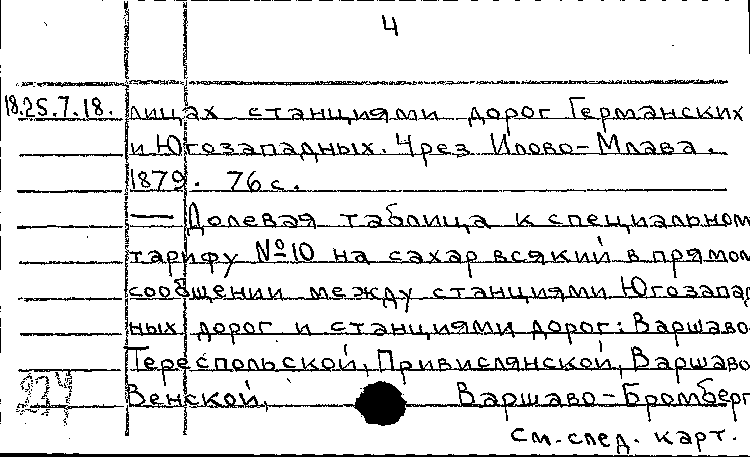 4
18.25.7.18. лицах станциями дорог Германских
и Югозападных. Чрез Илово-Млава.
1879. 76 с.
— Долевая таблица к специальном
тарифу №10 на сахар всякий в прямом
сообщении между станциями Югозапад
ных дорог и станциями дорог: Варшаво-
Тереспольской, Привислянской, Варшаво
Венской, Варшаво-Бромберг
237
См. след. карт.